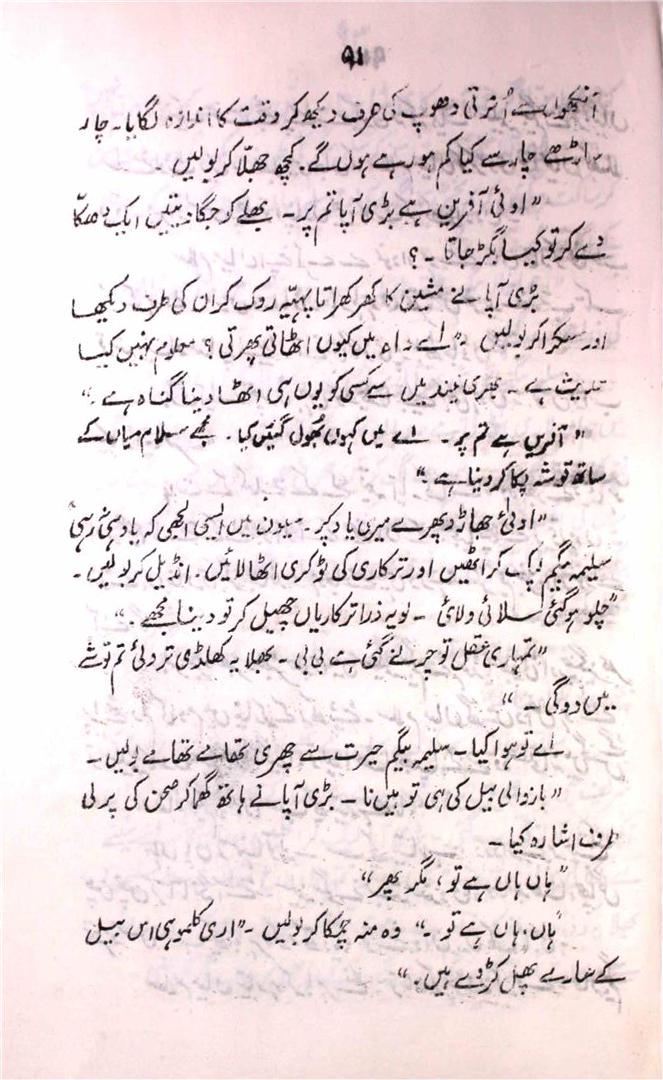 ۹۱
آنکھوں سے اُترتی دھوپ کی طرف دیکھ کر وقت کا اندازہ لگایا۔ چار
ساڑھے چار سے کیا کم ہو رہے ہوں گے۔ کچھ جھلّا کر بولیں ۔
"اوئی آفرین ہے بڑی آپا تم پر۔ بھلے کو جگا دیتیں ایک دھکا
دے کر تو کیسا بگڑ جاتا ۔؟
بڑی آپا نے مشین کا کھر کھراتا پہیّہ روک کر ان کی طرف دیکھا
اور مسکرا کر بولیں ۔ "اے واہ میں کیوں اٹھاتی پھرتی ؟ معلوم نہیں کیا
حدیث ہے ۔ بھری نیند میں سے کسی کو یوں ہی اٹھا دینا گناہ ہے ۔"
"آفرین ہے تم پر ۔ اے میں کہوں بھول گئیں کیا ۔ مجھے سلام میاں کے
ساتھ توشہ پکا کر دینا ہے ۔"
"اوئی جھاڑو پھرے میری یاد پر ۔ میں ان میں ایسی الجھی کہ یاد ہی نہ رہی"
سلیمہ بیگم لپک کر اٹھیں اور ترکاری کی ٹوکری اٹھا لائیں ۔ انڈیل کر بولیں ۔
"چلو ہو گئی سلائی ولائی ۔ لو یہ ذرا ترکاریاں چھیل کر تو دینا مجھے ۔"
"تمہاری عقل تو چرنے گئی ہے بی بی ۔ بھلا یہ کھلڈی تردئی تم توشے
میں دوگی ۔ "
اے تو ہوا کیا ۔ سلیمہ بیگم حیرت سے چھری تھامے تھامے بولیں ۔
"بازو والی بیل کی ہی تو ہیں نا ۔ بڑی آپا نے ہاتھ گھما کر صحن کی پرلی
طرف اشارہ کیا ۔
"ہاں ہاں ہے تو ، مگر پھر"
"ہاں، ہاں ہے تو ۔" وہ منہ چمکا کر بولیں ۔ "اری کلموہی اس بیل
کے سارے پھل کڑوے ہیں ۔"